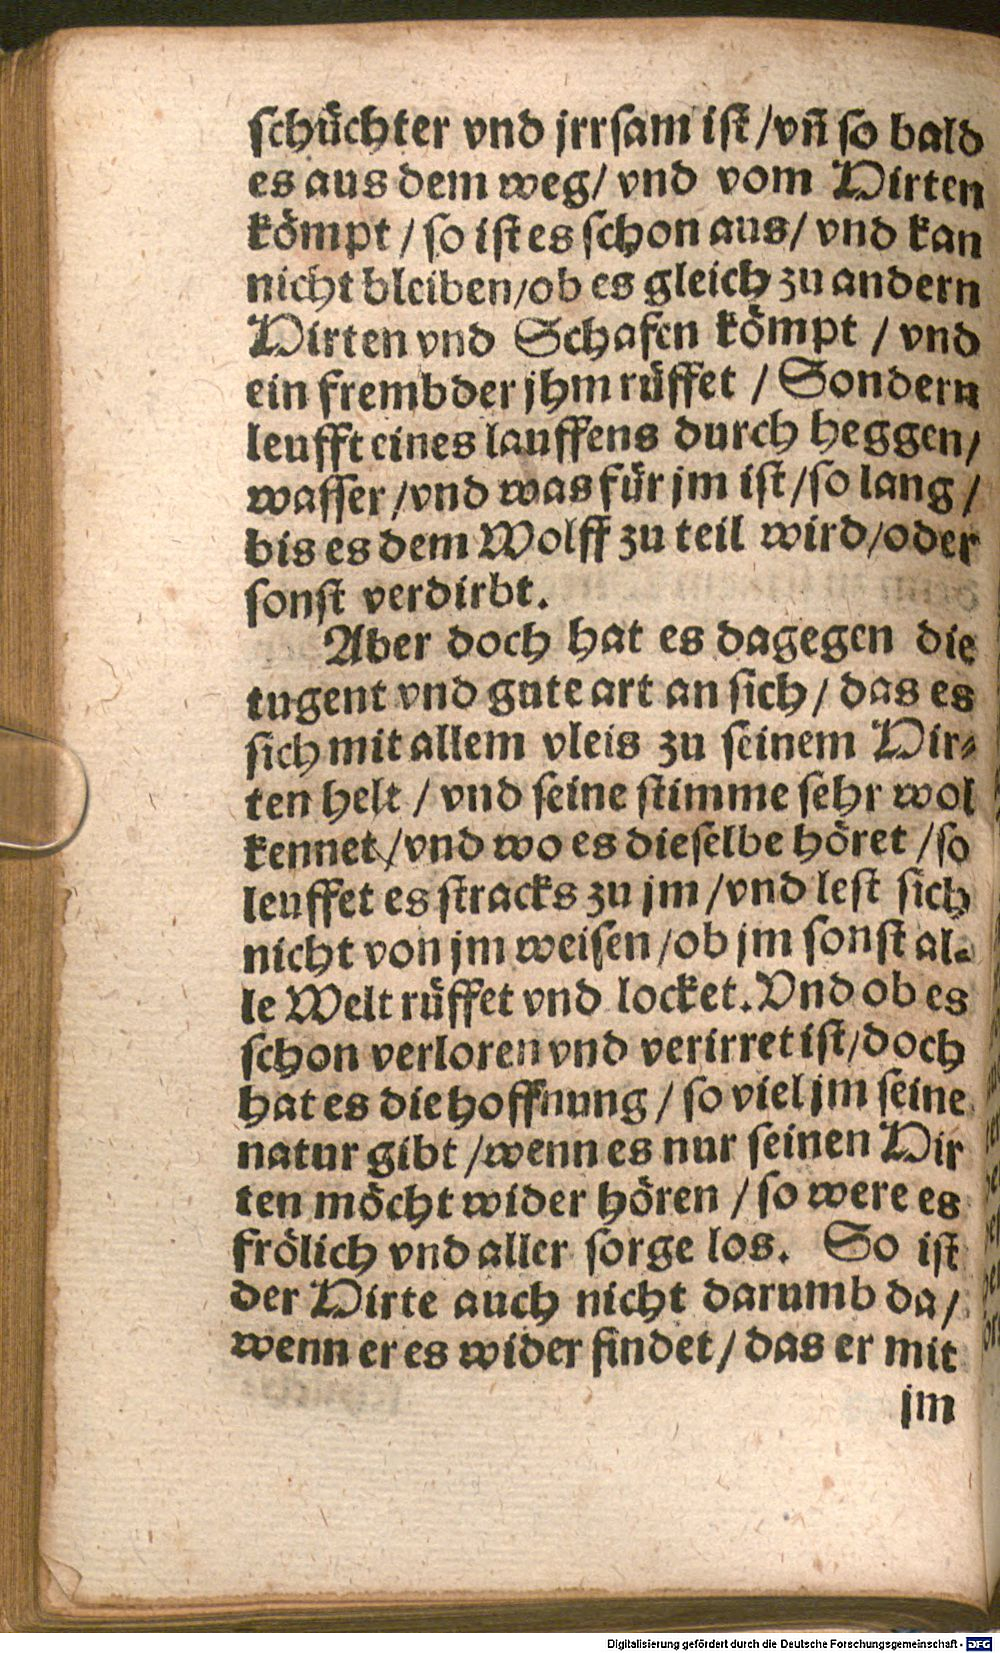 schüchter vnd jrrsam ist / vñ so bald
es aus dem weg / vnd vom Hirten
kömpt / so ist es schon aus / vnd kan
nicht bleiben / ob es gleich zu andern
Hirten vnd Schafen kömpt / vnd
ein frembder jhm rüffet / Sondern
leufft eines lauffens durch heggen /
wasser / vnd was für jm ist / so lang /
bis es dem Wolff zu teil wird / oder
sonst verdirbt.
Aber doch hat es dagegen die
tugent vnd gute art an sich / das es
sich mit allem vleis zu seinem Hir⸗
ten helt / vnd seine stimme sehr wol
kennet / vnd wo es dieselbe höret / so
leuffet es stracks zu jm / vnd lest sich
nicht von jm weisen / ob jm sonst al⸗
le Welt rüffet vnd locket. Vnd ob es
schon verloren vnd verirret ist / doch
hat es die hoffnung / so viel jm seine
natur gibt / wenn es nur seinen Hir
ten möcht wider hören / so were es
frölich vnd aller sorge los. So ist
der Hirte auch nicht darumb da /
wenn er es wider findet / das er mit
jm
Digitalisierung gefördert durch die Deutsche Forschungsgemeinschaft - DFG